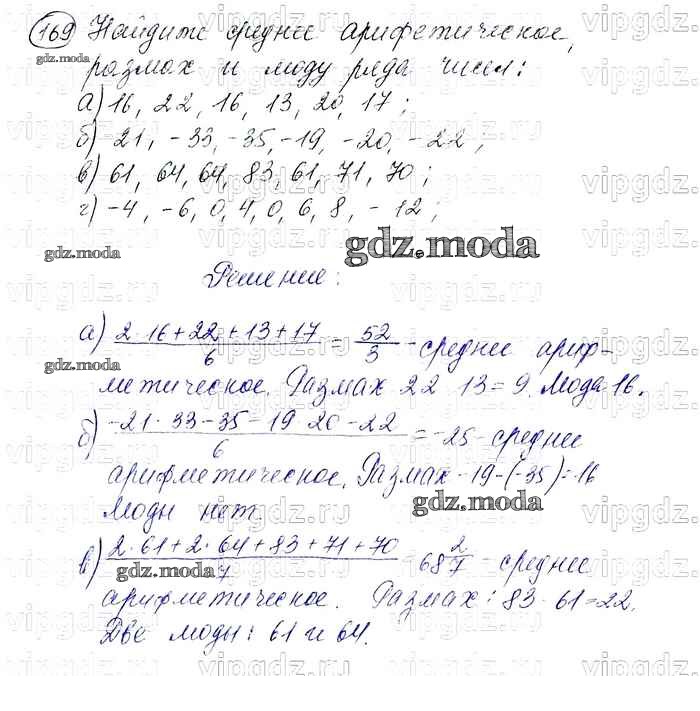 169 Найдите среднее арифметическое,
размах и моду ряда чисел:
а) 16, 22, 16, 13, 20, 17;
б) -21, -33, -35, -19, -20, -22;
в) 61, 64, 64, 83, 61, 71, 70;
г) -4, -6, 0, 4, 0, 6, 8, -12;
gdz.moda
gdz.moda
gdz.moda
Решение:
а) (2·16+22+13+17)/6 = 52/3 - среднее ариф-
gdz.moda
метическое. Размах 22 13=9. Мода 16.
б) (-21· 33-35-19 20-22)/6 = -25- среднее
арифметическое. Размах -19-(-35)=16
Моды нет.
gdz.moda
в) (2·61+2·64+83+71+70)/7 = 68 2/7 - среднее
gdz.moda
арифметическое. Размах: 83-61=22.
Две моды: 61 и 64.
vipgdz.ru